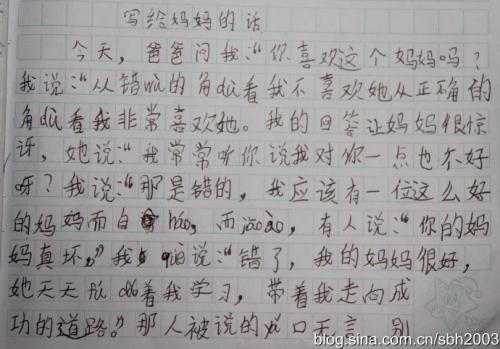 写给妈妈的话
今天，爸爸问我：“你喜欢这个妈妈吗？
我说：“从错wù的角dù看我不喜欢她从正确的
角dù看我非常喜欢她。我的回答让妈妈很惊
讶，她说：“我常常听你说我对你一点也不好
呀？我说：“那是错的，我应该有一位这么好
的妈妈而自háo，而jiāoào，有人说：“你的妈
妈真坏，”我què说：“错了，我的妈妈很好，
她天天着我学习，带着我走向成
功的道路。”那人被说的口无言，别
blog.sina.com.cn/sbh2003